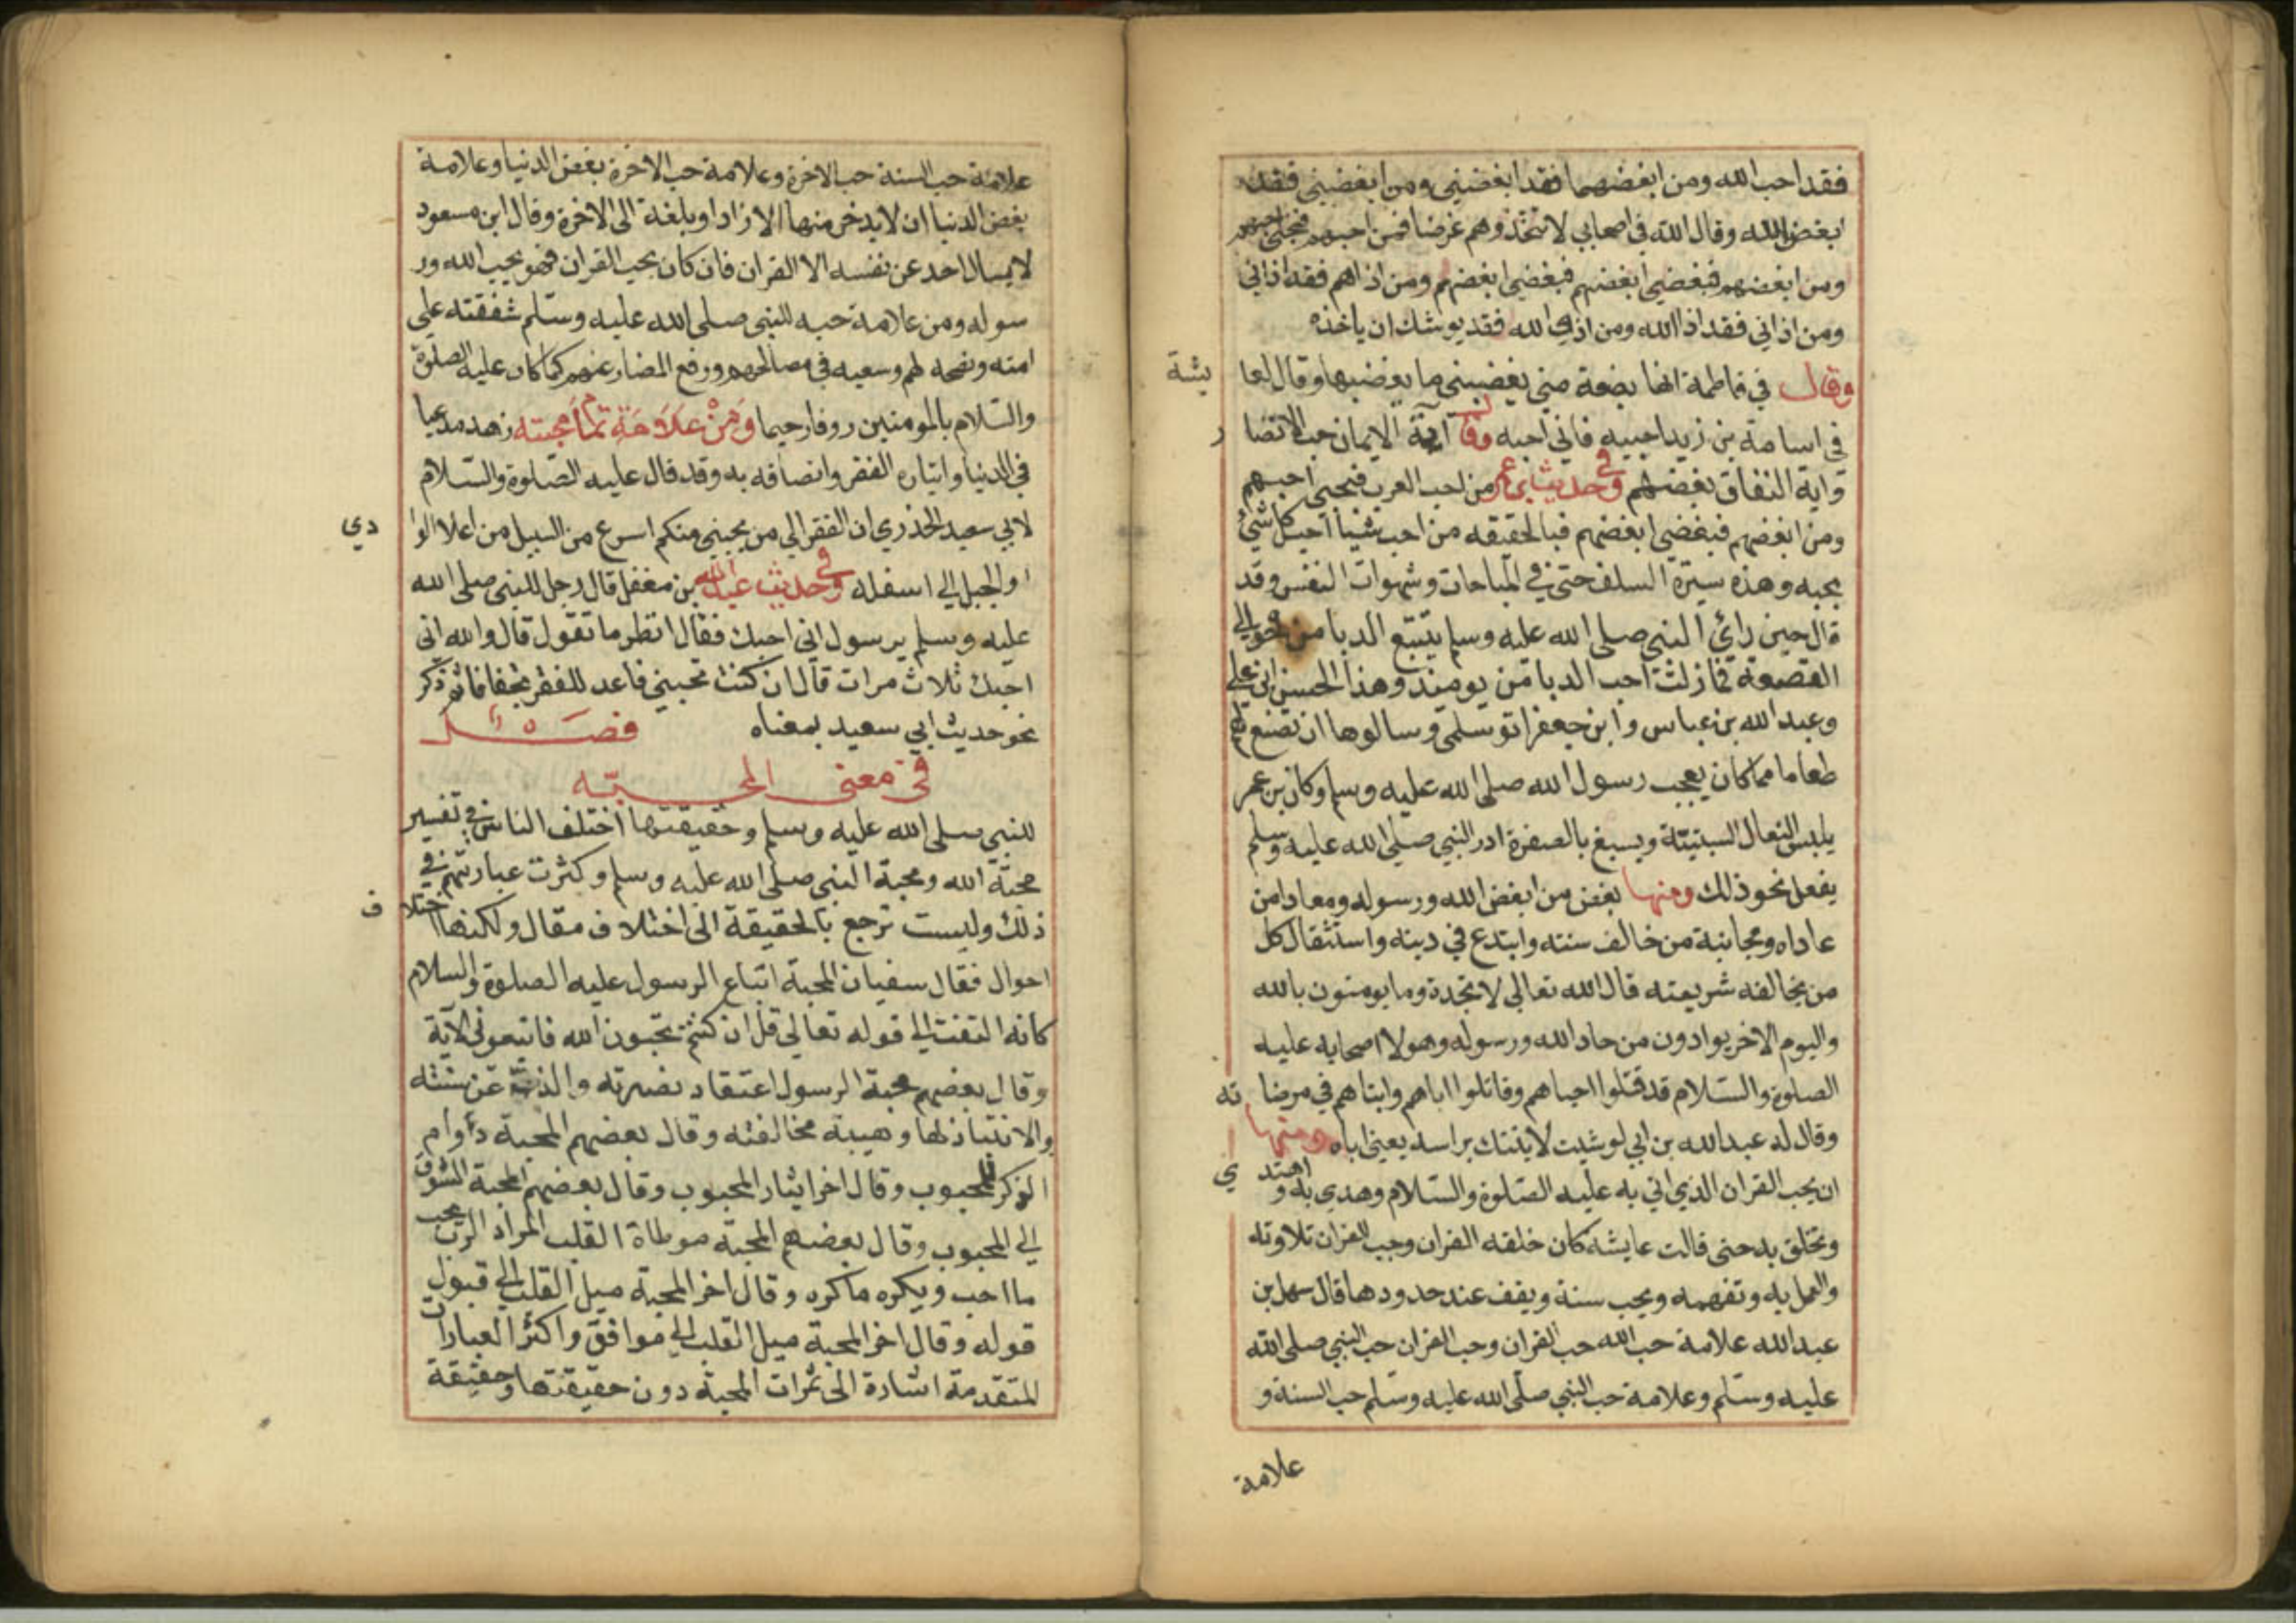 فقد احب الله ومن ابغضهما فقد ابغضني ومن ابغضني فقد
ابغض الله وقال الله الله في اصحابي لا تتخذوهم غرضا فمن احبهم فبحبي احبهم
ومن ابغضهم فببغضي ابغضهم ومن اذاهم فقد اذاني
ومن اذاني فقد اذا الله ومن اذي الله فقد يوشك ان ياخذه
وقال في فاطمة انها بضعة مني يغضبني ما يغضبها وقال لعا يشة
في اسامة بن زيد احبيه فاني احبه وقال آية الايمان حب الانصا ر
واية النفاق بغضهم وفي حديث ابن عمر من احب العرب فبحبي احبهم
ومن ابغضهم فببغضي ابغضهم فبالحقيقه من احب شيا احب كل شيئ
يحبه وهذه سيرة السلف حتى في المباحات وشهوات النفس وقد
قال حين رائ النبي صلى الله عليه وسلم يتتبع الدبا من حوالي
القصعة فما زلت احب الدبا من يوميذ وهذا الحسن ابن علي
وعبد الله بن عباس وابن جعفر اتو سلمى وسالوها ان تصنع لهم
طعاما مما كان يعجب رسول الله صلى الله عليه وسلم وكان بن عمر
يلبس النعال السبتية ويسبغ بالصفرة ادر النبي صلى الله عليه وسلم
يفعل نحو ذلك ومنها بغض من ابغض الله ورسوله ومعادا من
عاداه ومجانبة من خالف سنته وابتدع في دينه واستثقال كل
من يخالفه شريعته قال الله تعالي لا تجد قوما يومنون بالله
واليوم الاخر يوادون من حاد الله ورسوله وهولا اصحابه عليه
الصلوة والسلام قد قتلوا احباهم وقاتلوا اباهم وابناهم في مرضا ته
وقال له عبد الله بن ابي لو شيت لاتيتك براسه يعني اباه ومنها
ان يحب القران الذي اتي به عليه الصلوة والسلام وهدي به و اهتد ي
وتخلق به حتى قالت عايشه كان خلقه القران وحب القران تلاوته
والعمل به وتفهمه ويحب سنة ويقف عند حدودها قال سهل بن
عبد الله علامة حب الله حب القران وحب القران حب النبي صلى الله
عليه وسلم وعلامة حب النبي صلى الله عليه وسلم حب السنة و
علامة
علامة حب السنة حب الاخرة وعلامة حب الاخرة بغض الدنيا وعلامة
بغض الدنيا ان لا يدخر منها الا زادا وبلغة الى الاخرة وقال ابن مسعود
لا يسال احد عن نفسه الا القران فان كان يحب القران فهو يحب الله ور
سوله ومن علامة حبه للنبي صلى الله عليه وسلم شفقته علي
امته ونصحه لهم وسعيه في مصالحهم ورفع المضار عنهم كما كان عليه الصلوة
والسلام بالمومنين روفا رحيما ومن علامة تمام محبته زهد مدعيا
في الدنيا وايثاره الفقر واتصافه به وقد قال عليه الصلوة والسلام
لابي سعيد الخذري ان الفقر الي من يحبني منكم اسرع من السيل من اعلا الوا دي
او الجبل الي اسفله وفي حديث عبد الله بن مغفل قال رجل للنبي صلى الله
عليه وسلم يرسول اني احبك فقال انظر ما تقول قال والله اني
احبك ثلاث مرات قال ان كنت تحبني فاعد للفقر تجفافا ثم ذكر
نحو حديث ابي سعيد بمعناه فصل
في معنى المحبّه
للنبي صلى الله عليه وسلم وحقيقتها اختلف الناس في تفسير
محبّة الله ومحبة النبي صلى الله عليه وسلم وكثرت عبارتهم في
ذلك وليست ترجع بالحقيقة الى اختلاف مقال ولكنها اختلا ف
احوال فقال سفيان المحبة اتباع الرسول عليه الصلوة والسلام
كانه التفت الي قوله تعالي قل ان كنتم تحبون الله فاتبعوني الآية
وقال بعضهم محبة الرسول اعتقاد نصرته والذب عن سنته
والانقياد لها وهيبة مخالفته وقال بعضهم المحبة دوام
الذكر للمحبوب وقال اخر ايثار المحبوب وقال بعضهم المحبة الشوق
الي المحبوب وقال بعضهم المحبة موطاة القلب لمراد الرب يحب
ما احب ويكره ما كره وقال اخر المحبة ميل القلب الي قبول
قوله وقال اخر المحبة ميل القلب الي موافق واكثر العبارات
المتقدمة اشارة الى ثمرات المحبة دون حقيقتها وحقيقة